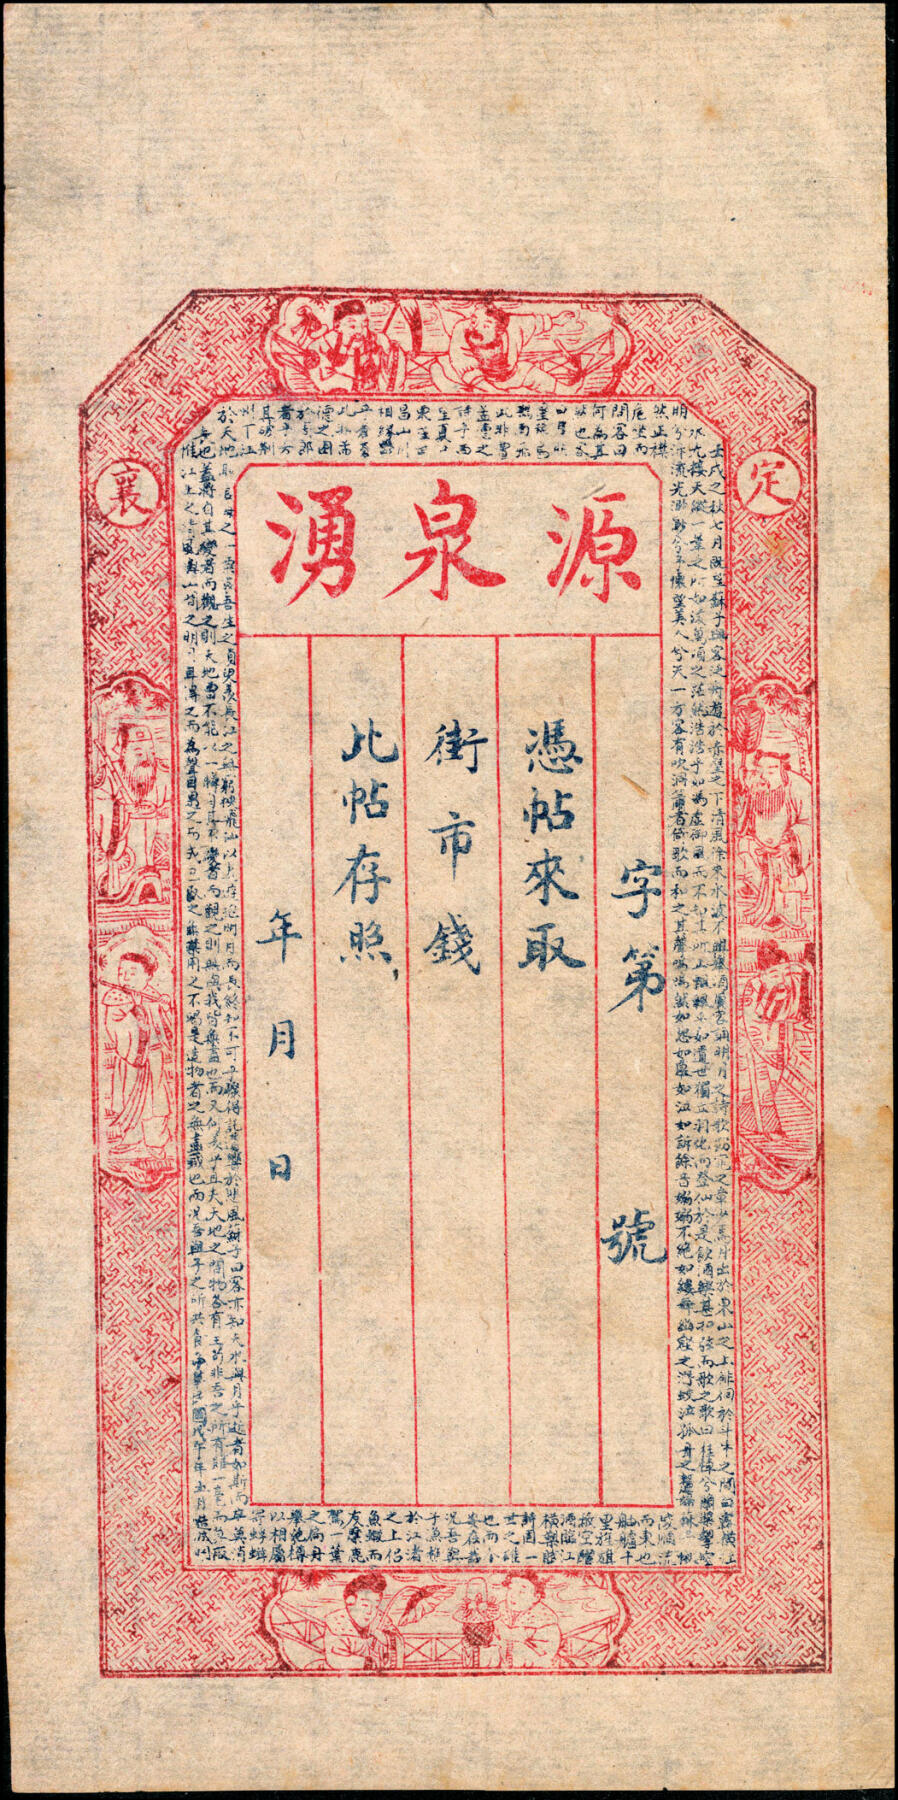 源泉湧
定
襄
字第號
憑帖來取
街市錢
此帖存照
年月日
壬戌之秋七月既望蘇子與客泛舟遊於赤壁之下清風徐來水波不興舉酒屬客誦明月之詩歌窈窕之章少焉月出於東山之上徘徊於斗牛之間白露橫江
水光接天縱一葦之所如凌萬頃之茫然浩浩乎如馮虛御風而不知其所止飄飄乎如遺世獨立羽化而登仙於是飲酒樂甚扣弦而歌之歌曰桂棹兮蘭槳擊空
明兮泝流光渺渺兮予懷望美人兮天一方客有吹洞簫者倚歌而和之其聲嗚嗚然如怨如慕如泣如訴餘音嫋嫋不絕如縷舞幽壑之潛蛟泣孤舟之嫠婦蘇子愀
然正襟
危坐而
問客曰
何為其
然也客
曰月明
此非曹
孟德之
詩乎西
望夏口
東望武
昌山川
相繆鬱
乎蒼蒼
此非孟
德之困
於周郎
者乎方
其破荊
州下江
陵順流
而東也
舳艫千
里旌旗
蔽空釃
酒臨江
橫槊賦
詩固一
世之雄
也而今
安在哉
況吾與
子漁樵
於江渚
之上侶
魚蝦而
友麋鹿
駕一葉
之扁舟
舉匏樽
以相屬
寄蜉蝣
於天地
之一粟哀吾生之須臾羨長江之無窮挾飛仙以遨遊抱明月而長終知不可乎驟得託遺響於悲風蘇子曰客亦知夫水與月乎逝者如斯而
也蓋將自其變者而觀之則天地曾不能以一瞬自其不變者而觀之則物與我皆無盡也而又何羨乎且夫天地之間物各有主苟非吾之所有雖一毫而莫取
惟江上之清風與山間之明月耳得之而為聲目遇之而成色取之無禁用之不竭是造物者之無盡藏也而況吾與子之所共食中華民國戊午年